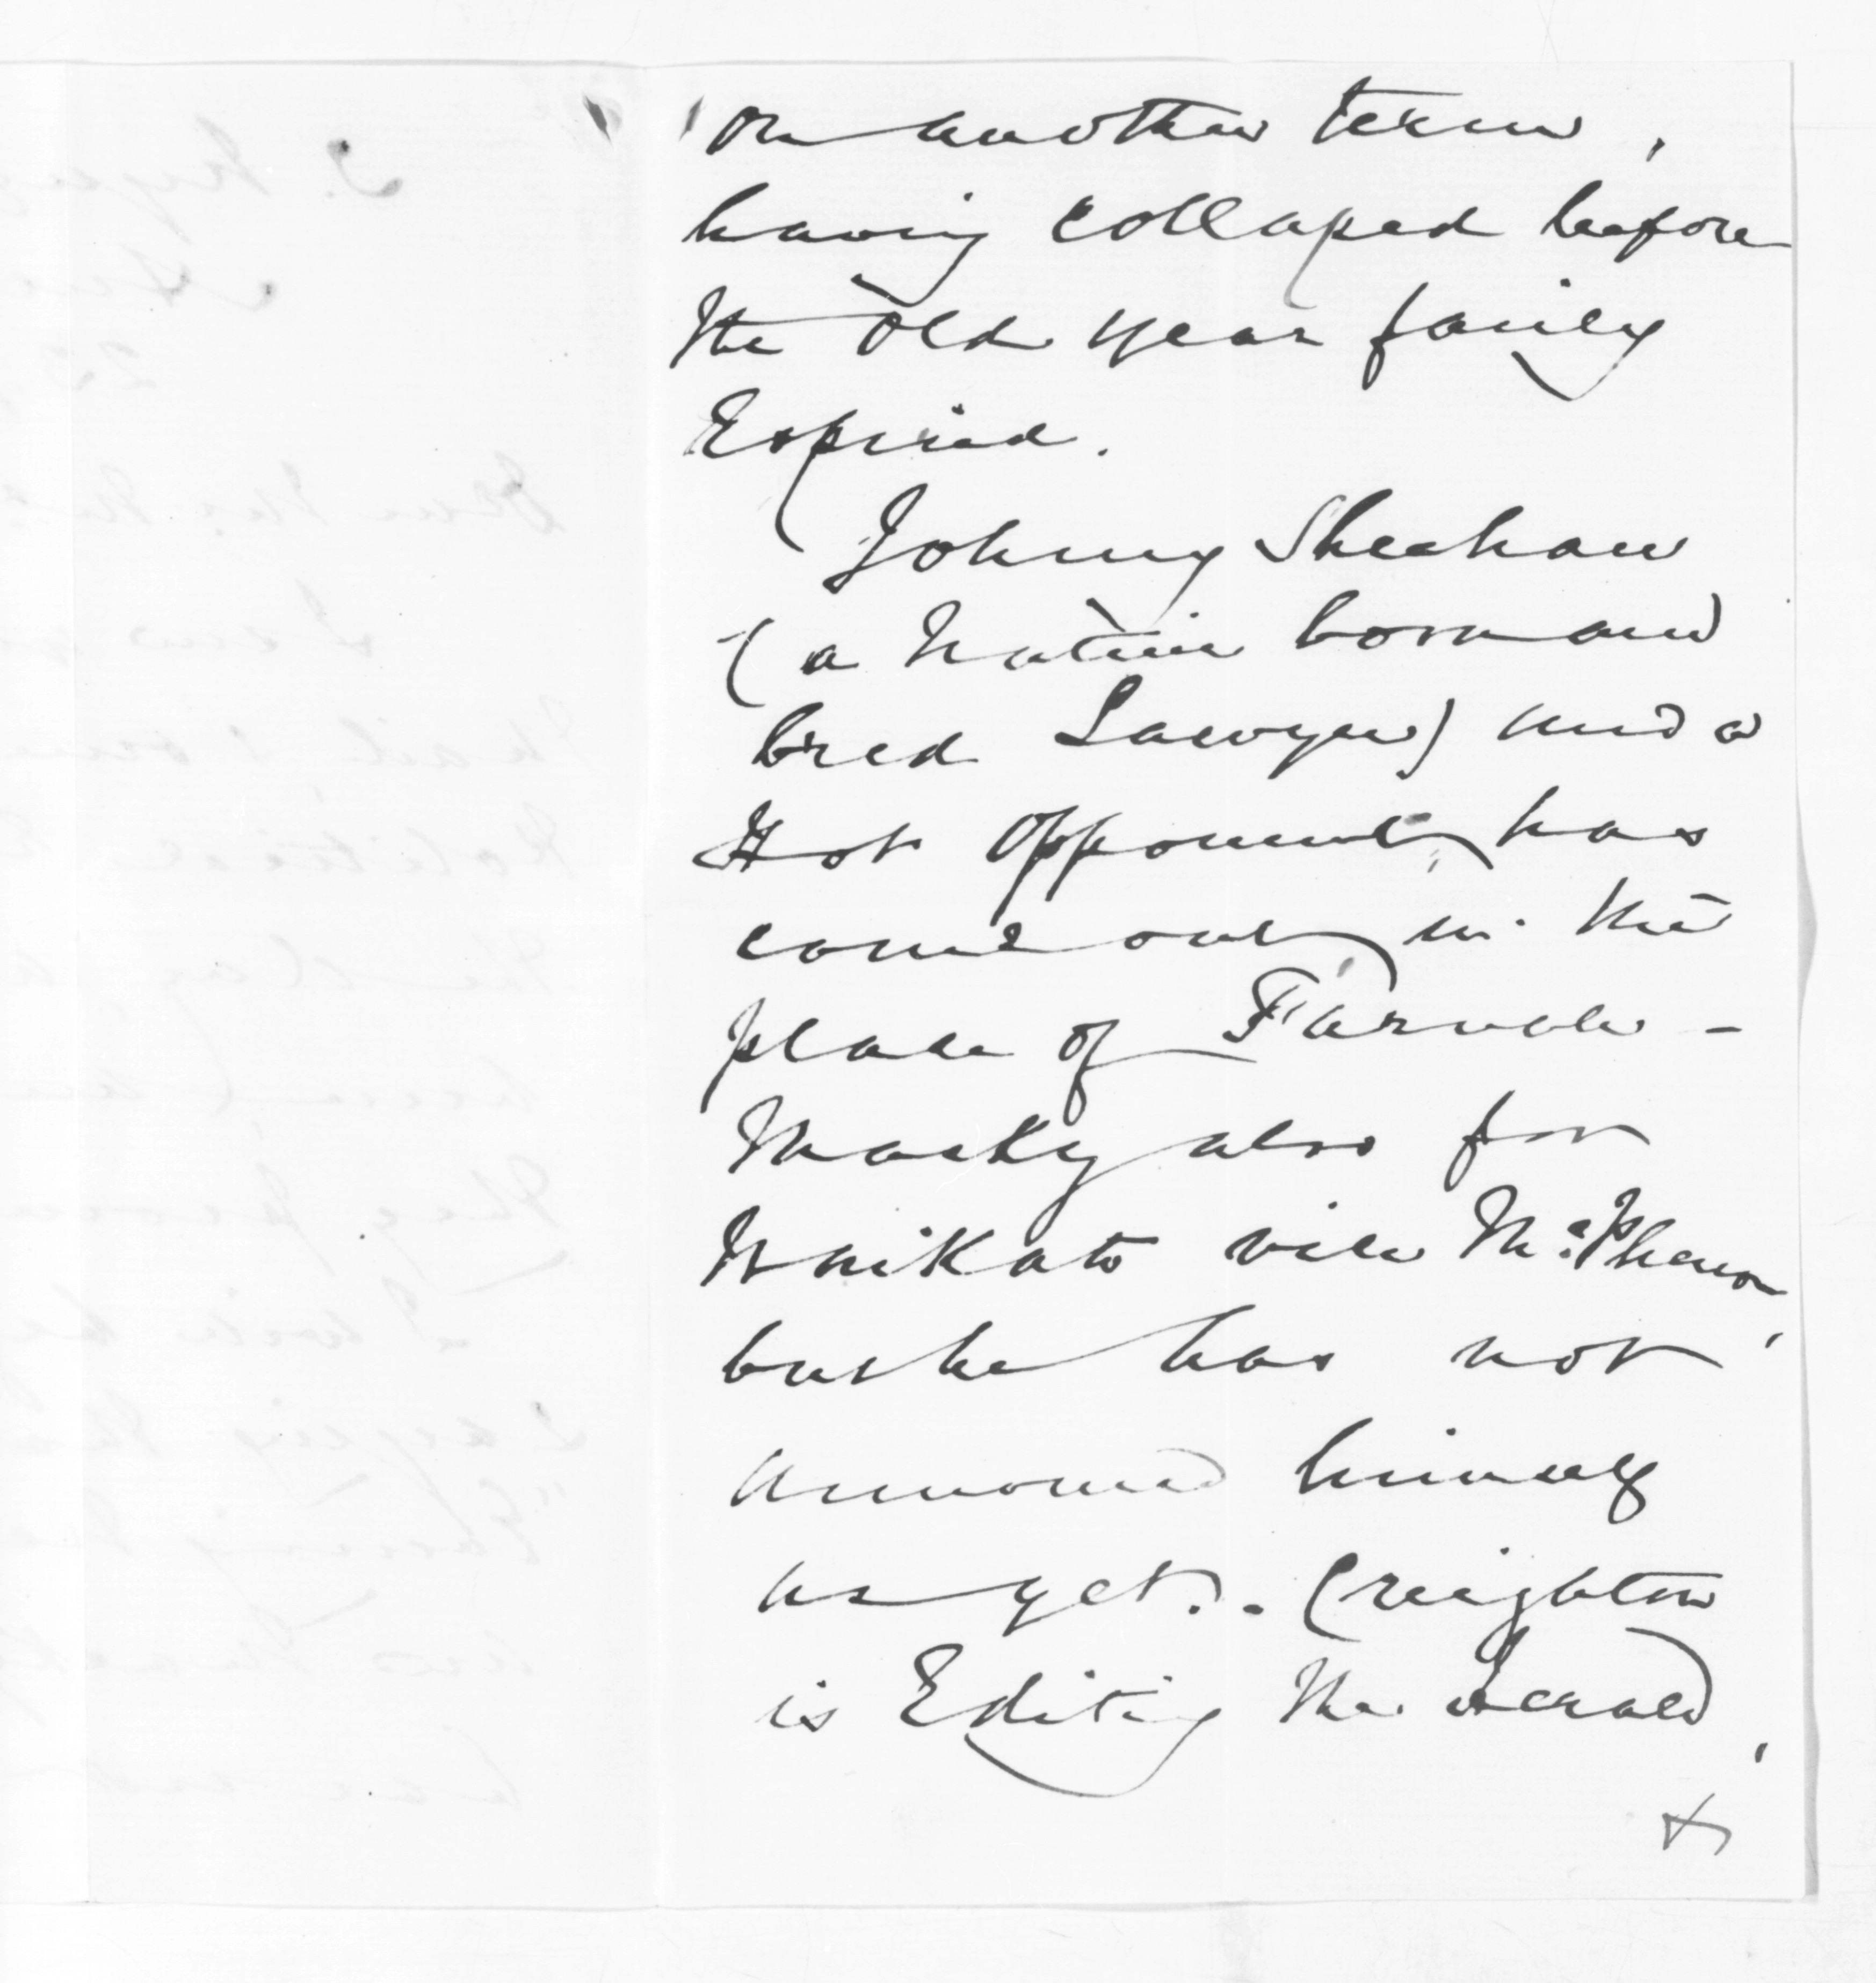 on another term,
having collapsed before
the old year fairly
Expired.
Johnny Sheehan
(a Native born and
bred Lawyer) and a
Hot opponent, has
come out in the
place of Farnall -
Macky also for
Waikato vice McPherson,
but he has not
announced himself
as yet.. Creighton
is Editing the Herald,
&